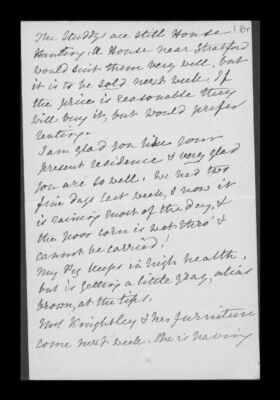 The Studdys are still House
Hunting. A House near Stratford
would suit them very well, but
it is to be sold next week. If
the price is reasonable they
will buy it, but would prefer
renting.
I am glad you like your
present residence & very glad
you are so well. We had two
fine days last week, & now it
is raining most of the day, &
the poor corn is wet thro' &
cannot be carried!
My Peg keeps in high health,
but is getting a little gray, alias
brown, at the tips.
Mrs Knightley & her furniture
come next week. She is having